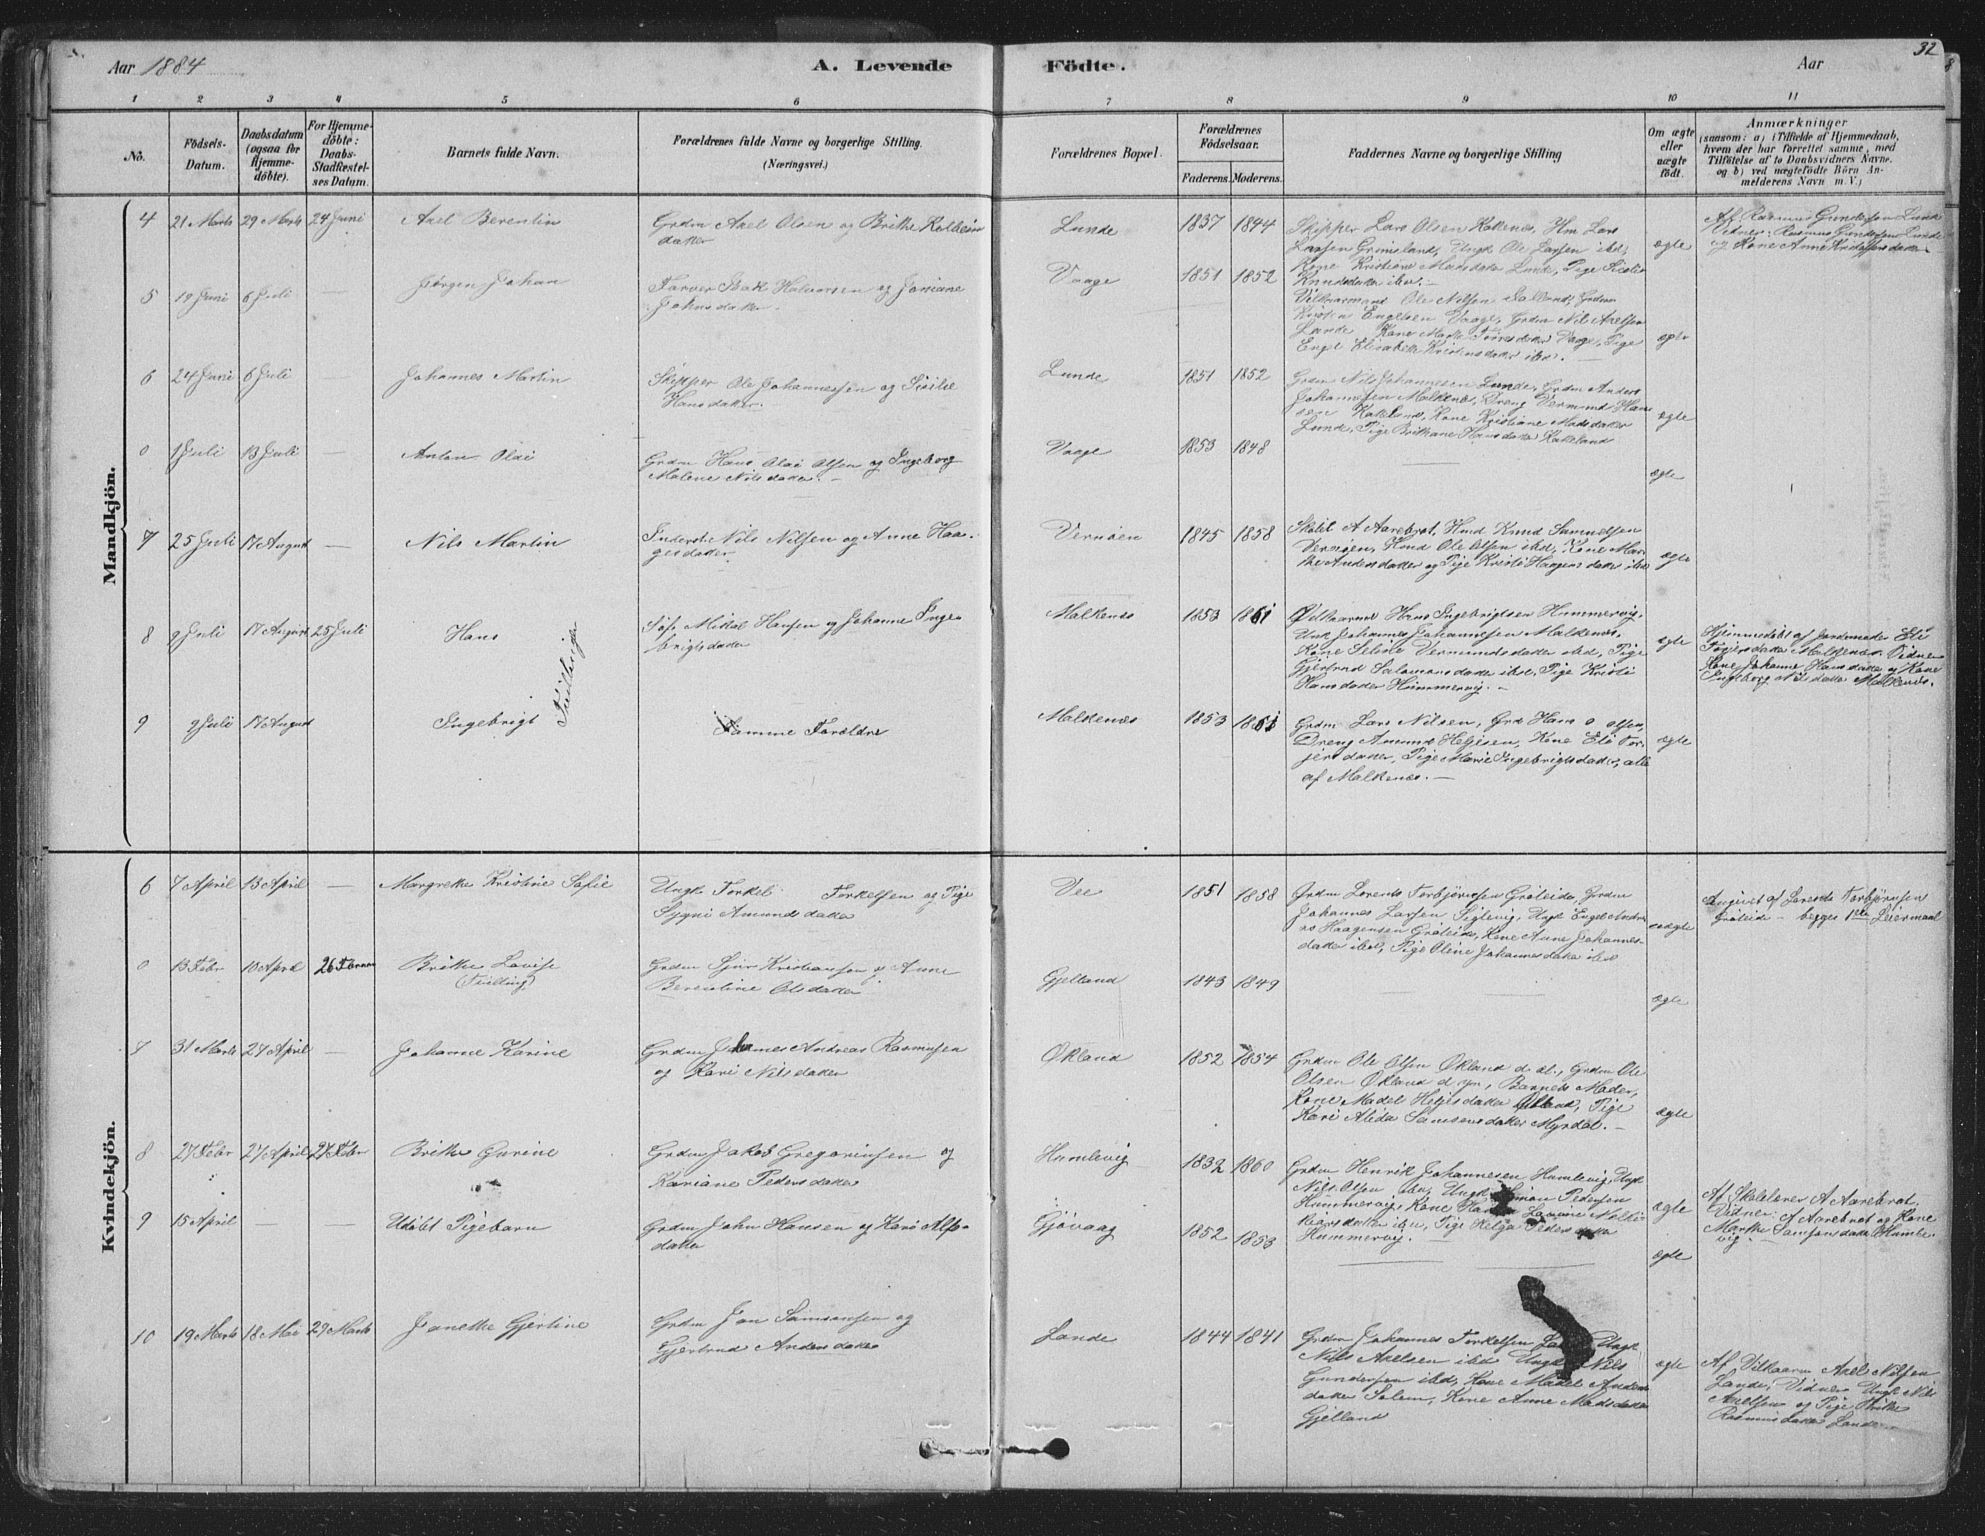 Aar 1884
A. Levende Födte.
Aar
32
1 2 3 4 5 6 7 8 9 10 11
No.
Födsels-
Datum.
Daabsdatum
(ogsaa for
Hjemme-
döbte).
For Hjemme-
döbte:
Daabs-
Stadfæstel-
ses Datum.
Barnets fulde Navn.
Forældrenes fulde Navne og borgerlige Stilling.
(Næringsvei.)
Forældrenes Bopæl.
Forældrenes
Födselsaar.
Faderens. Moderens.
Faddernes Navne og borgerlige Stilling
Om ægte
eller
uægte
födt.
Anmærkninger
(saasom: a) i Tilfælde af Hjemmedaab,
hvem der har forrettet samme, med
Tilföielse af to Daabsvidners Navne,
og b) ved uægtefödte Börn An-
melderens Navn m. V.)
Mandkjön.
4 21 Marts 29 Marts 24 Juni
Axel Berentin
Grdm Axel Olsen og Brithe Kolbein
datter
Lunde
1837 1844
Skipper Lars Olsen Kaltenes, Hm Lars
Larsen Grimsland, Ungk Ole Larsen ibd,
Kone Kristiane Mansdatter Lunde, Pige Sisilie
Knudsdatter ibd.
ægte
Af Rasmus Gundersen Lunde
Vidner: Rasmus Gundersen Lunde
og Kone Anne Kristoffersdatter
5 19 Juni 6 Juli —
Jørgen Johan
Farver Isak Halvorsen og Joniane
Johnsdatter
Vaage
1851 1852
Vilkaarmand Ole Nilsen Salland, Grdm
Kristen Engelsen Vaage, Grdm Nil Axelsen
Lande Kone Marta Toresdatter Vaage, Pige
Engel Elisabeth Kristensdatter ibd. —
ægte
6 24 Juni 6 Juli —
Johannes Martin
Skipper Ole Johannessen og Sisilie
Hansdatter.
Lunde
1851 1852
Grdm Nils Johannesen Lunde, Grdm Anders
Johannesen Malkenes, Dreng Vermund Han
sen Kakeland, Kone Kristiane Madsdatter
Lunde, Pige Brithane Hansdatter Kakeland
ægte
0 1 Juli 13 Juli —
Anton Olai
Grdm Hans Olai Olsen og Ingeborg
Malene Nilsdatter. —
Vaage
1853 1848
ægte
7 25 Juli 17 August —
Nils Martin
Inderst Nils Nilsen og Anne Haa-
gesdatter
Vernøen
1845 1858
Skoll A Aarebrot, Hmd Knud Samuelsen
Vernøen, Hmd Ole Olsen ibd, Kone Mar
the Andersdatter og Pige Kristi Haagensdatter ibd
ægte
8 9 Juli 17 August 25 Juli
Hans
Tvillinger
Søf. Mikal Hansen og Johanne Inge-
brigtsdatter
Malkenes
1853 1861
Vilkaarmd Hans Ingebrigtsen Hummervig,
Ungk Johannes Johannesen Malkenes,
Kone Seline Vermundsdatter ibd, Pige
Gjertrud Salomonsdatter ibd, Pige Kristi
Hansdatter Hummervig. —
ægte
Hjemmedøbt af Jordemoder Eli
Torjersdatter Malkenes. Vidner
Kone Johanne Hansdatter og Kone
Ingeborg Nilsdatter Malkenes.
9 9 Juli 17 August
Ingebrigt
Samme Forældre
Malkenes
1853 1861
Grdm Lars Nilsen, Grd Hans O Olsen,
Dreng Amund Helgesen, Kone Eli Tor-
jersdatter, Pige Marie Ingebrigtsdatter, alle
af Malkenes. —
ægte
Kvindekjön.
6 7 April 13 April —
Margrethe Kristine Sofie
Ungk Torkel Torkelsen og Pige
Sygni Amundsdatter
Vee
1851 1858
Grdm Lorents Torbjørnsen Grøteide, Grdm
Johannes Larsen Siglevig, Ungk Engel Andre
as Haagensen Grøteide, Kone Anne Johannes-
datter ibd, Pige Oline Johannesdatter ibd
uægte
Angivet af Lorents Torbjørnsen
Grøteide — begges 1ste Leiermaal
0 13 Febr 10 April 26 Februar
Brithe Lovise
(Tvilling)
Grdm Sjur Kristiansen og Anne
Berentine Olsdatter
Gjelland
1843 1849
ægte
7 31 Marts 27 April —
Johanne Karine
Grdm Johannes Andreas Rasmusen
og Kari Nilsdatter
Økland
1852 1854
Grdm Ole Olsen Økland d. æl., Grdm Ole
Olsen Økland d yn, Barnets Moder,
Kone Madel Helgesdatter Økland, Pige
Kari Alida Samsonsdatter Myrdal. —
ægte
8 27 Febr 27 April 27 Febr
Brithe Gurine
Grdm Jakob Gregoriusen og
Kariane Pedersdatter
Humlevig
1832 1860
Grdm Henrik Johannesen Humlevig, Ungk
Nils Olsen ibd, Ungk Simon Pedersen
Hummervig, Kone Lavine Nelli-
kiansdatter ibd, Pige Helga Pedersdatter
Hummervig.
ægte
Af Skolelærer A Aarebrot.
Vidner: A Aarebrot og Kone
Marthe Samsonsdatter Humle-
vig
9 15 April — —
Udøbt Pigebarn
Grdm John Hansen og Kari Alfs-
datter
Gjøvaag
1852 1853
ægte
10 19 Marts 18 Mai 29 Marts
Janette Gjertine
Grdm Jon Samsonsen og
Gjertrud Andersdatter
Lande
1844 1841
Grdm Johannes Torkelsen Ungk
Nils Axelsen ibd Ungk Nils
Gundersen ibd, Kone Madel Anders
datter Solem, Kone Anne Madsdatter
Gjelland
ægte
Af Vilkaarm Axel Nilsen
Lande, Vidner Ungk Nils
Axelsen og Pige Brithe
Rasmusdatter Lande